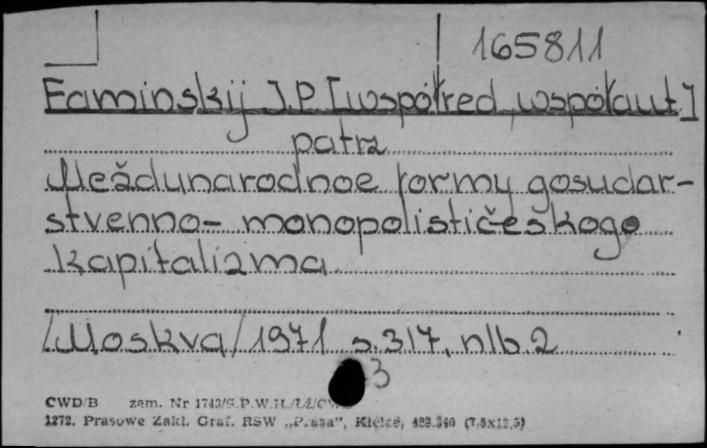 165811
Faminskij I.P. [współred, współaut.]
patrz
Meždunarodnoe formy gosudar-
stvenno- monopolističeškogo
kapitalizma
/Moskva/ 1971 s.317, nlb.2
3
CWD/B zam. Nr 1743/S.P.W.H.
1272. Prasowe Zakl. Graf. RSW „Prasa", Kielce, (7,5x12,5)